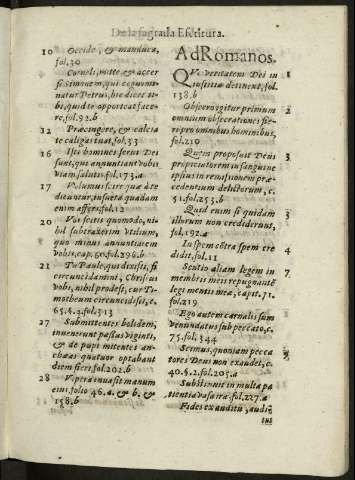 De la sagrada Escritura.
10 Occide, & manduca,
fol.30
Corneli, mitte & accer
si Simonem, qui cognomi-
natur Petrus, hic dicet ti-
bi, quid te oporteat face-
re, fol.92.b
12 Præcingere, & calcia
te caligas tuas, fol.33
16 Isti homines serui Dei
sunt, qui annuntiant vobis
viam salutis. fol.173.a
17 Volumus scire quæ à te
dicuntur, in fueta quædam
enim affers, fol.12
20 Vos scitis quomodo, ni-
hil subtraxerim vtilium,
quo minus annuntiarem
vobis, cap.60. fol.296.b
21 Tu Paule, qui dixisti, si
circuncidamini, Christus
vobis, nihil prodest, cur Ti-
motheum circuncidisti, c.
65.§.4. fol.313
27 Submittentes bolidem,
inuenerunt passus viginti,
& de pupi mitentes an-
choras quatuor optabant
diem fieri. fol.202.b
28 Vipera inuasit manum
eius folio 46.a. & b. &
158.b
Ad Romanos.
QVi veritatem Dei in 1
iustitia detinent, fol.
138.b
Obsecro igitur primum 2
omnium obsecrationes fie-
ri pro omnibus hominibus,
fol.210
Quem proposuit Deus 3
propiciatorem in sanguine
ipsius in remissionem præ-
cedentium delictorum, c.
51. fol.253.b
Quid enim si quidam 3
illorum non crediderunt,
fol.192.a
In spem cõtra spem cre 4
didit. fol.11
Sentio aliam legem in 7
membris meis repugnantẽ
legi mentis meæ, capit.71.
fol.219
Ego autem carnalis sum
venundatus sub peccato, c.
75. fol.344
Scimus, quoniam pecca
tores Deus non exaudit, c.
40.§.2. fol.205.a
Sustinuit in multa pa-
tientia vasa iræ. fol.227.a
Fides ex auditu, audi-
tus